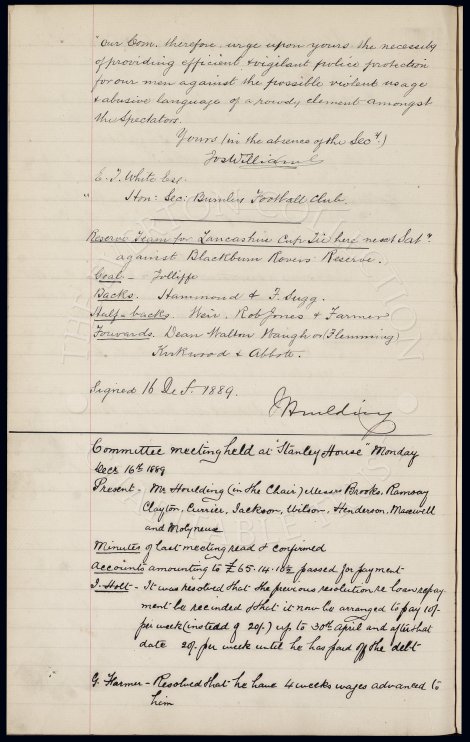 "Our Com. therefore, urge upon yours the necessity
of providing efficient & vigilant police protection
for our men against the possible violent usage
& abusive language of a rowdy element amongst
the Spectators.
Yours (in the absence of the Secy.)
Jos Williams
E. J. White Esq.
" Hon: Sec: Burnley Football Club.
Reserve Team for Lancashire Cup Tie here next Saty.
against Blackburn Rovers Reserve.
Goal - Jolliffe
Backs. Hammond & F. Sugg.
Half-backs. Weir, Rob Jones & Farmer
Forwards. Dean Walton Waugh or (Flemming)
Kirkwood & Abbott.
Signed 16 Der. 1889.
J Houlding
Committee meeting held at "Stanley House" Monday
Decr 16th 1889
Present - Mr Houlding (in the Chair) Messrs Brooks, Ramsay
Clayton, Currier, Jackson, Wilson, Henderson, Maxwell
and Molyneux
Minutes of last meeting read & confirmed
Accounts amounting to £65.14.10½ passed for payment
J. Holt - It was resolved that the previous resolution re loan repay
ment be recinded & that it now be arranged to pay 10/-
per week (instead of 20/-) up to 30th April and after that
date 20/- per week until he has paid off the debt
G. Farmer - Resolved that he have 4 weeks wages advanced to
him